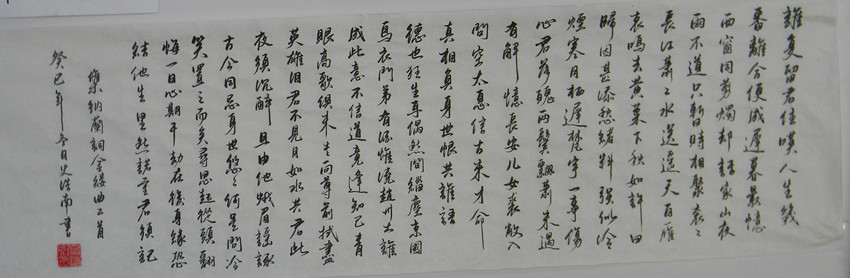 誰复留君住嘆人生幾
番離合便成遲暮最憶
西窗同剪燭却話家山夜
雨不道只暫時相聚衮々
長江蕭々水送遥天百雁
哀鳴去黄葉下秋如許曰
歸因甚添愁緒料強似冷
煙寒月栖遲梵宇一事傷
心君落魄兩鬢飄蕭未遇
有解憶長安儿女裘敝入
問空太息信古來才命
真相負身世恨共誰語
德也狂生耳偶然間緇塵京國
烏衣門第有酒惟澆趙州土誰
成此意不信道竟逢知己青
眼高歌俱未老向尊前拭盡
英雄泪君不見月如水共君此
夜須沉醉且由他蛾眉謡諑
古今同忌身世悠々何足問冷
笑置之而矣尋思起從頭翻
悔一日心期千劫在後身緣恐
結他生里然諾重君須記
集納蘭詞金縷曲二首
癸巳年冬日史浩南書